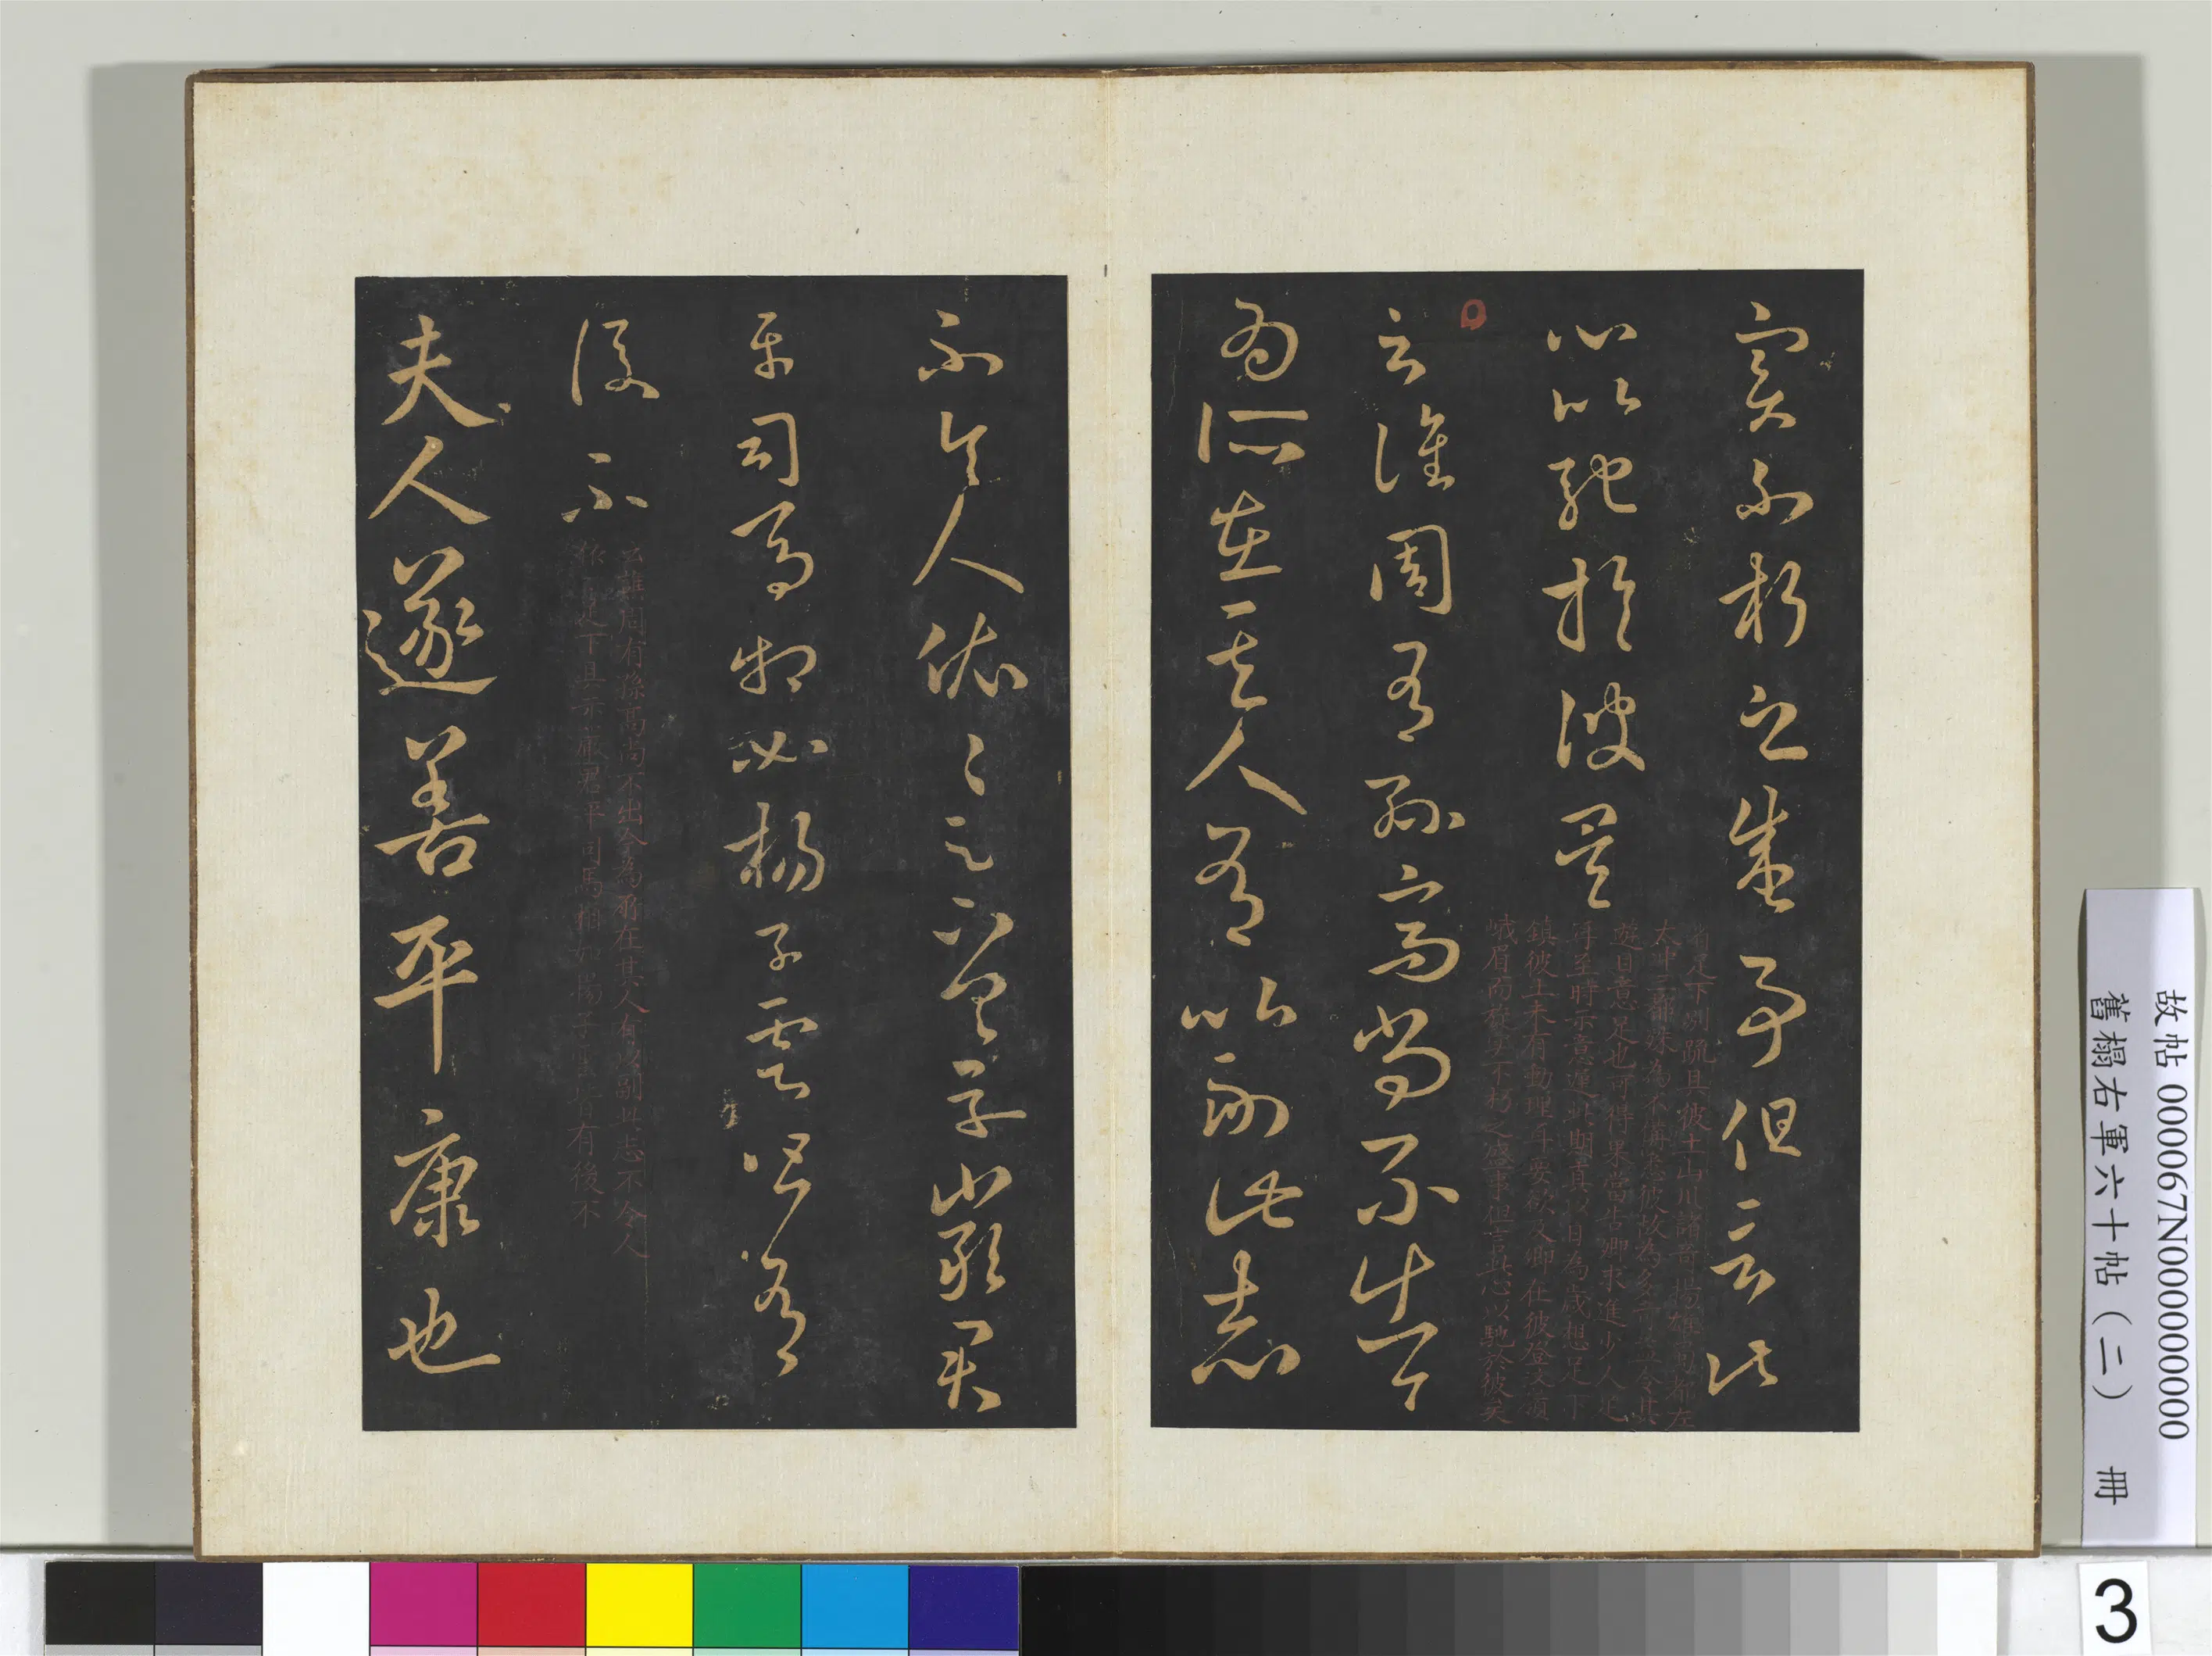 實不朽之盛事但言此
心以馳於彼矣
省足下別疏具彼土山川諸奇揚雄蜀都左
太沖三都殊為不備悉彼故為多奇益令其
遊目意足也可得果當告卿求進少人足
耳至時示意遲此期真以日為歲想足下
鎮彼土未有動理耳要欲及卿在彼登汶嶺
峨眉而旋實不朽之盛事但言此心以馳於彼矣
云譙周有孫高尚不出今
為所在其人有以副此志
不令人依〻足下具示嚴君
平司馬相如楊子雲皆有
後不
云譙周有孫高尚不出今為所在其人有以副此志不令人
依〻足下具示嚴君平司馬相如揚子雲皆有後不
夫人遂善平康也
故帖 000067N000000000
舊榻右軍六十帖（二） 冊
3